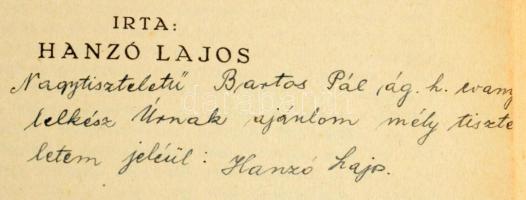 IRTA:
HANZÓ LAJOS
Nagytiszteletű Bartos Pál ág. h. evang
lelkész Úrnak ajánlom mély tiszte
letem jeléül: Hanzó Lajos.